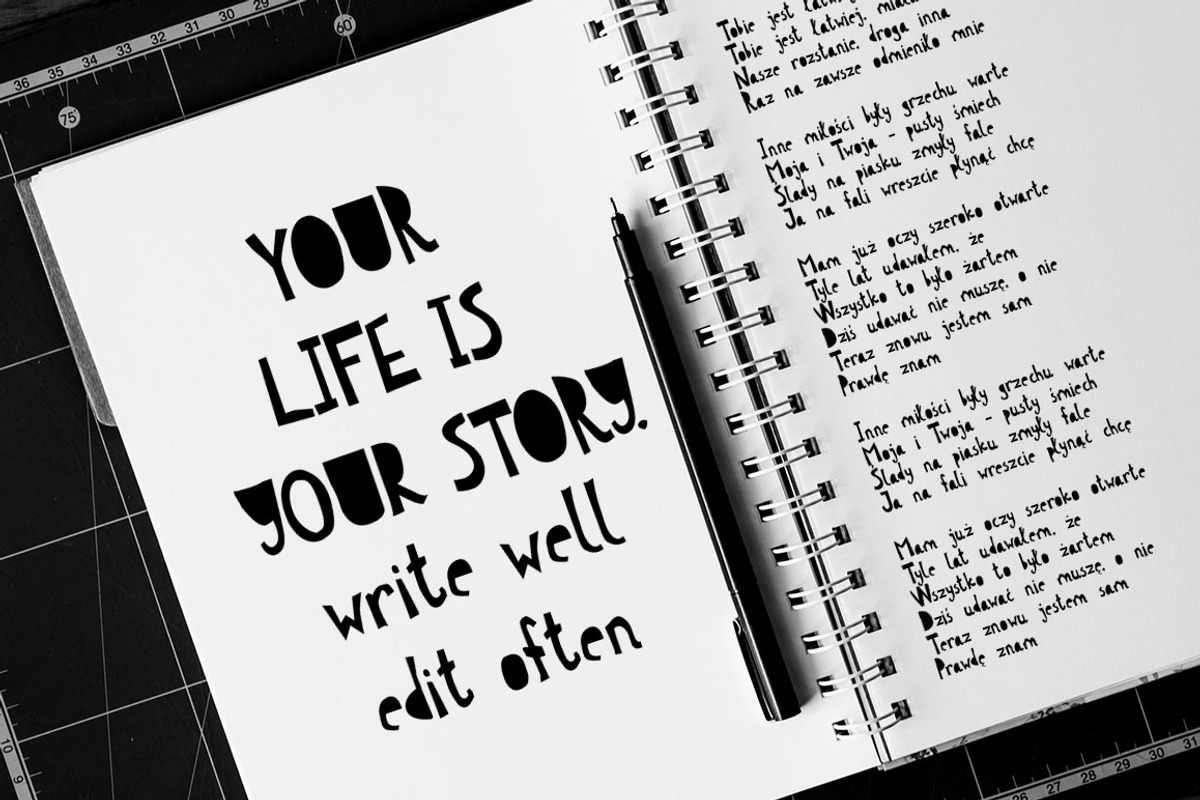 36 35 34 33 32 31 30 29
60°
75°
YOUR
LIFE IS
YOUR STORY.
write well
edit often
Tobie jest
Tobie jest łatwiej,
Nasze rozstanie, droga inna
Raz na zawsze odmieniło mnie
Inne miłości były grzechu warte
Moja i Twoja - pusty śmiech
Ślady na piasku zmyły fale
Ja na fali wreszcie płynąć chcę
Mam już oczy szeroko otwarte
Tyle lat udawałem, że
Wszystko to było żartem
Dziś udawać nie muszę, o nie
Teraz znowu jestem sam
Prawdę znam
Inne miłości były grzechu warte
Moja i Twoja - pusty śmiech
Ślady na piasku zmyły fale
Ja na fali wreszcie płynąć chcę
Mam już oczy szeroko otwarte
Tyle lat udawałem, że
Wszystko to było żartem
Dziś udawać nie muszę, o nie
Teraz znowu jestem sam
Prawdę znam
10 9
26 27 28 29 30 31